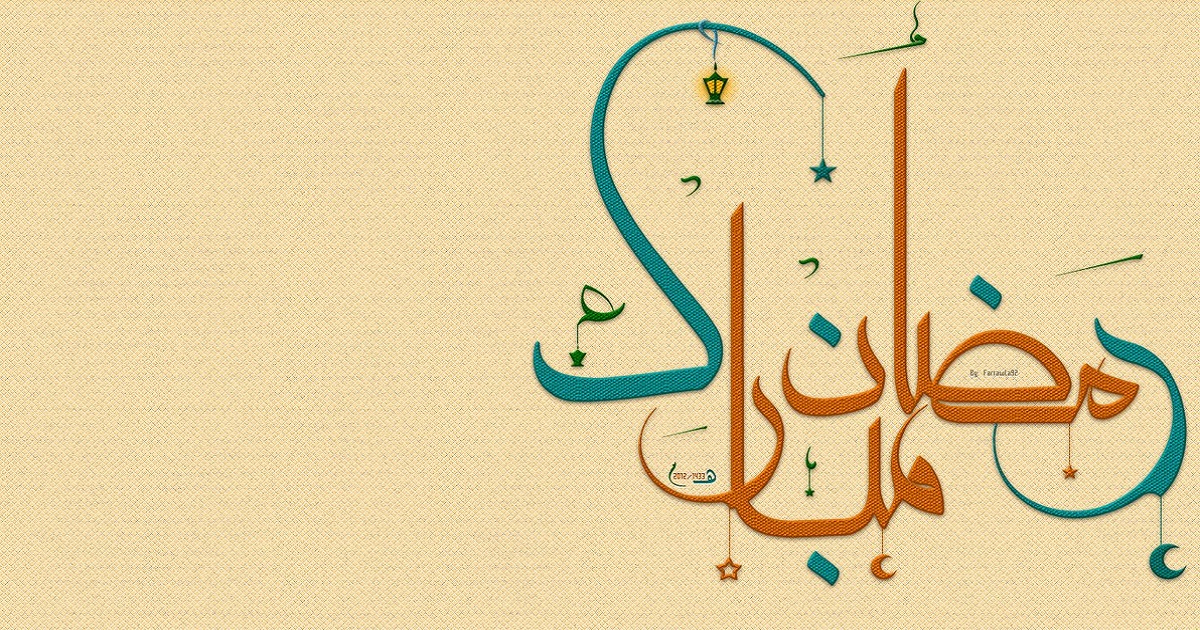 رمضان
مبارك
By Farrawla92
2012/1433